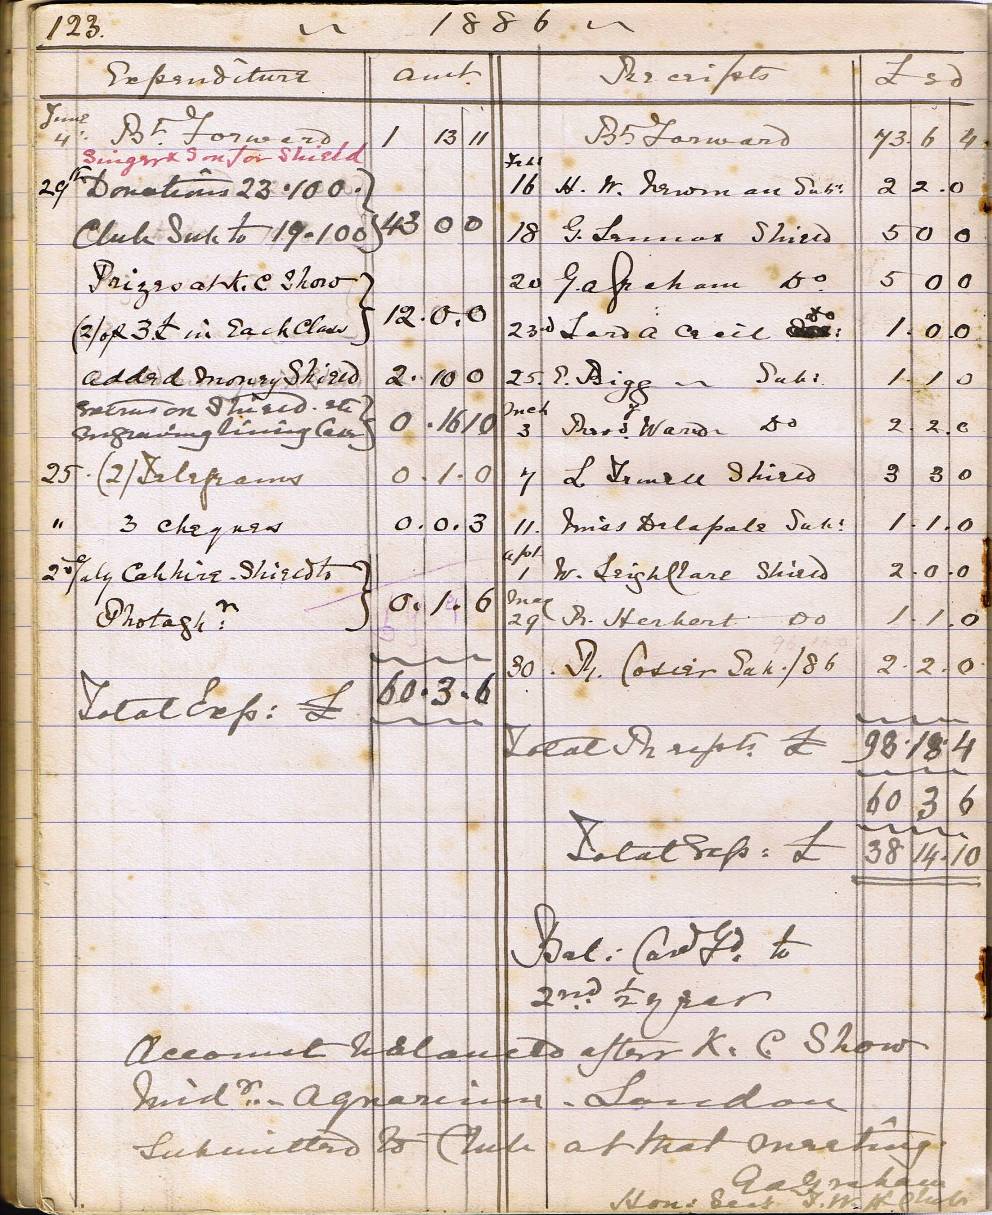 123. ~ 1886 ~
Expenditure amt.
June 4th Bt. Forward 1 13 11
Singer & Son for Shield
29th Donations 23.10 0.
Club Sub to 19.10 0 43 0 0
Prizes at K. C Show
(2) of 3£ in Each Class 12.0.0
added money Shield 2.10 0
Extras on Shield. etc
Engraving lining Case 0.16 10
25. (2) Telegrams 0.1.0
" 3 cheques 0.0.3
2nd July Cabhire. Shield to
Photaghr. 0.1.6
Total Exp: £ 60.3.6
Receipts £ s d
Bt Forward 73.6 4.
Feb
16 H. W. Newman Sub: 2 2.0
18 G. Lennox Shield 5 0 0
20 G.a Graham Do. 5 0 0
23rd Lord A Cecil Do: 1.0 0
25. E. Bigg ~ Sub: 1.1 0
Mch
3 Thos. Ward Do 2.2.0
7 Shield 3 3 0
11. Miss Delapole Sub: 1.1.0
apl.
1 W. Leigh Clare Shield 2.0.0
May
29 R. Herbert Do 1.1.0
30. R. Cosier Sub./86 2.2.0
Total Receipts £ 98.18.4
60 3 6
Total Exp: £ 38 14.10
Bal: Card Fd. to
2nd ½ year
Account balanced after K. C. Show
Aquarium. London
Submitted to Club at that meeting.
G a Graham
Hon: Sec: I. W. H Club